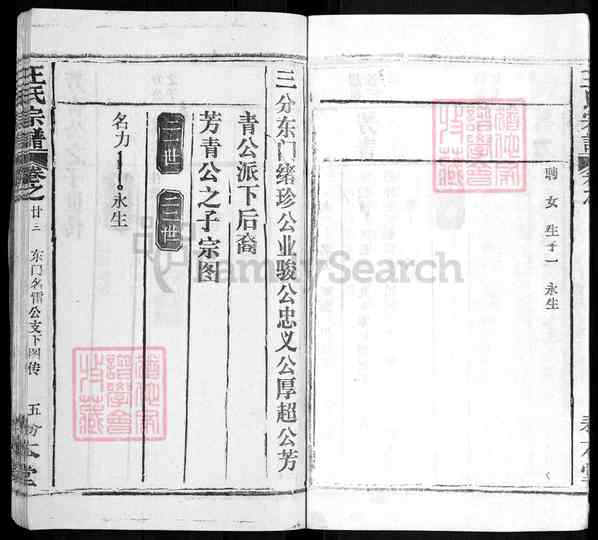 聘 女 生子一 永生
三分东门绪珍公业骏公忠义公厚超公芳
青公派下后裔
芳青公之子宗图
一世 二世
名力 永生
王氏宗谱 卷之 廿三 东门名雷公支下图传 五分 本堂
FamilySearch
譜學會
收藏